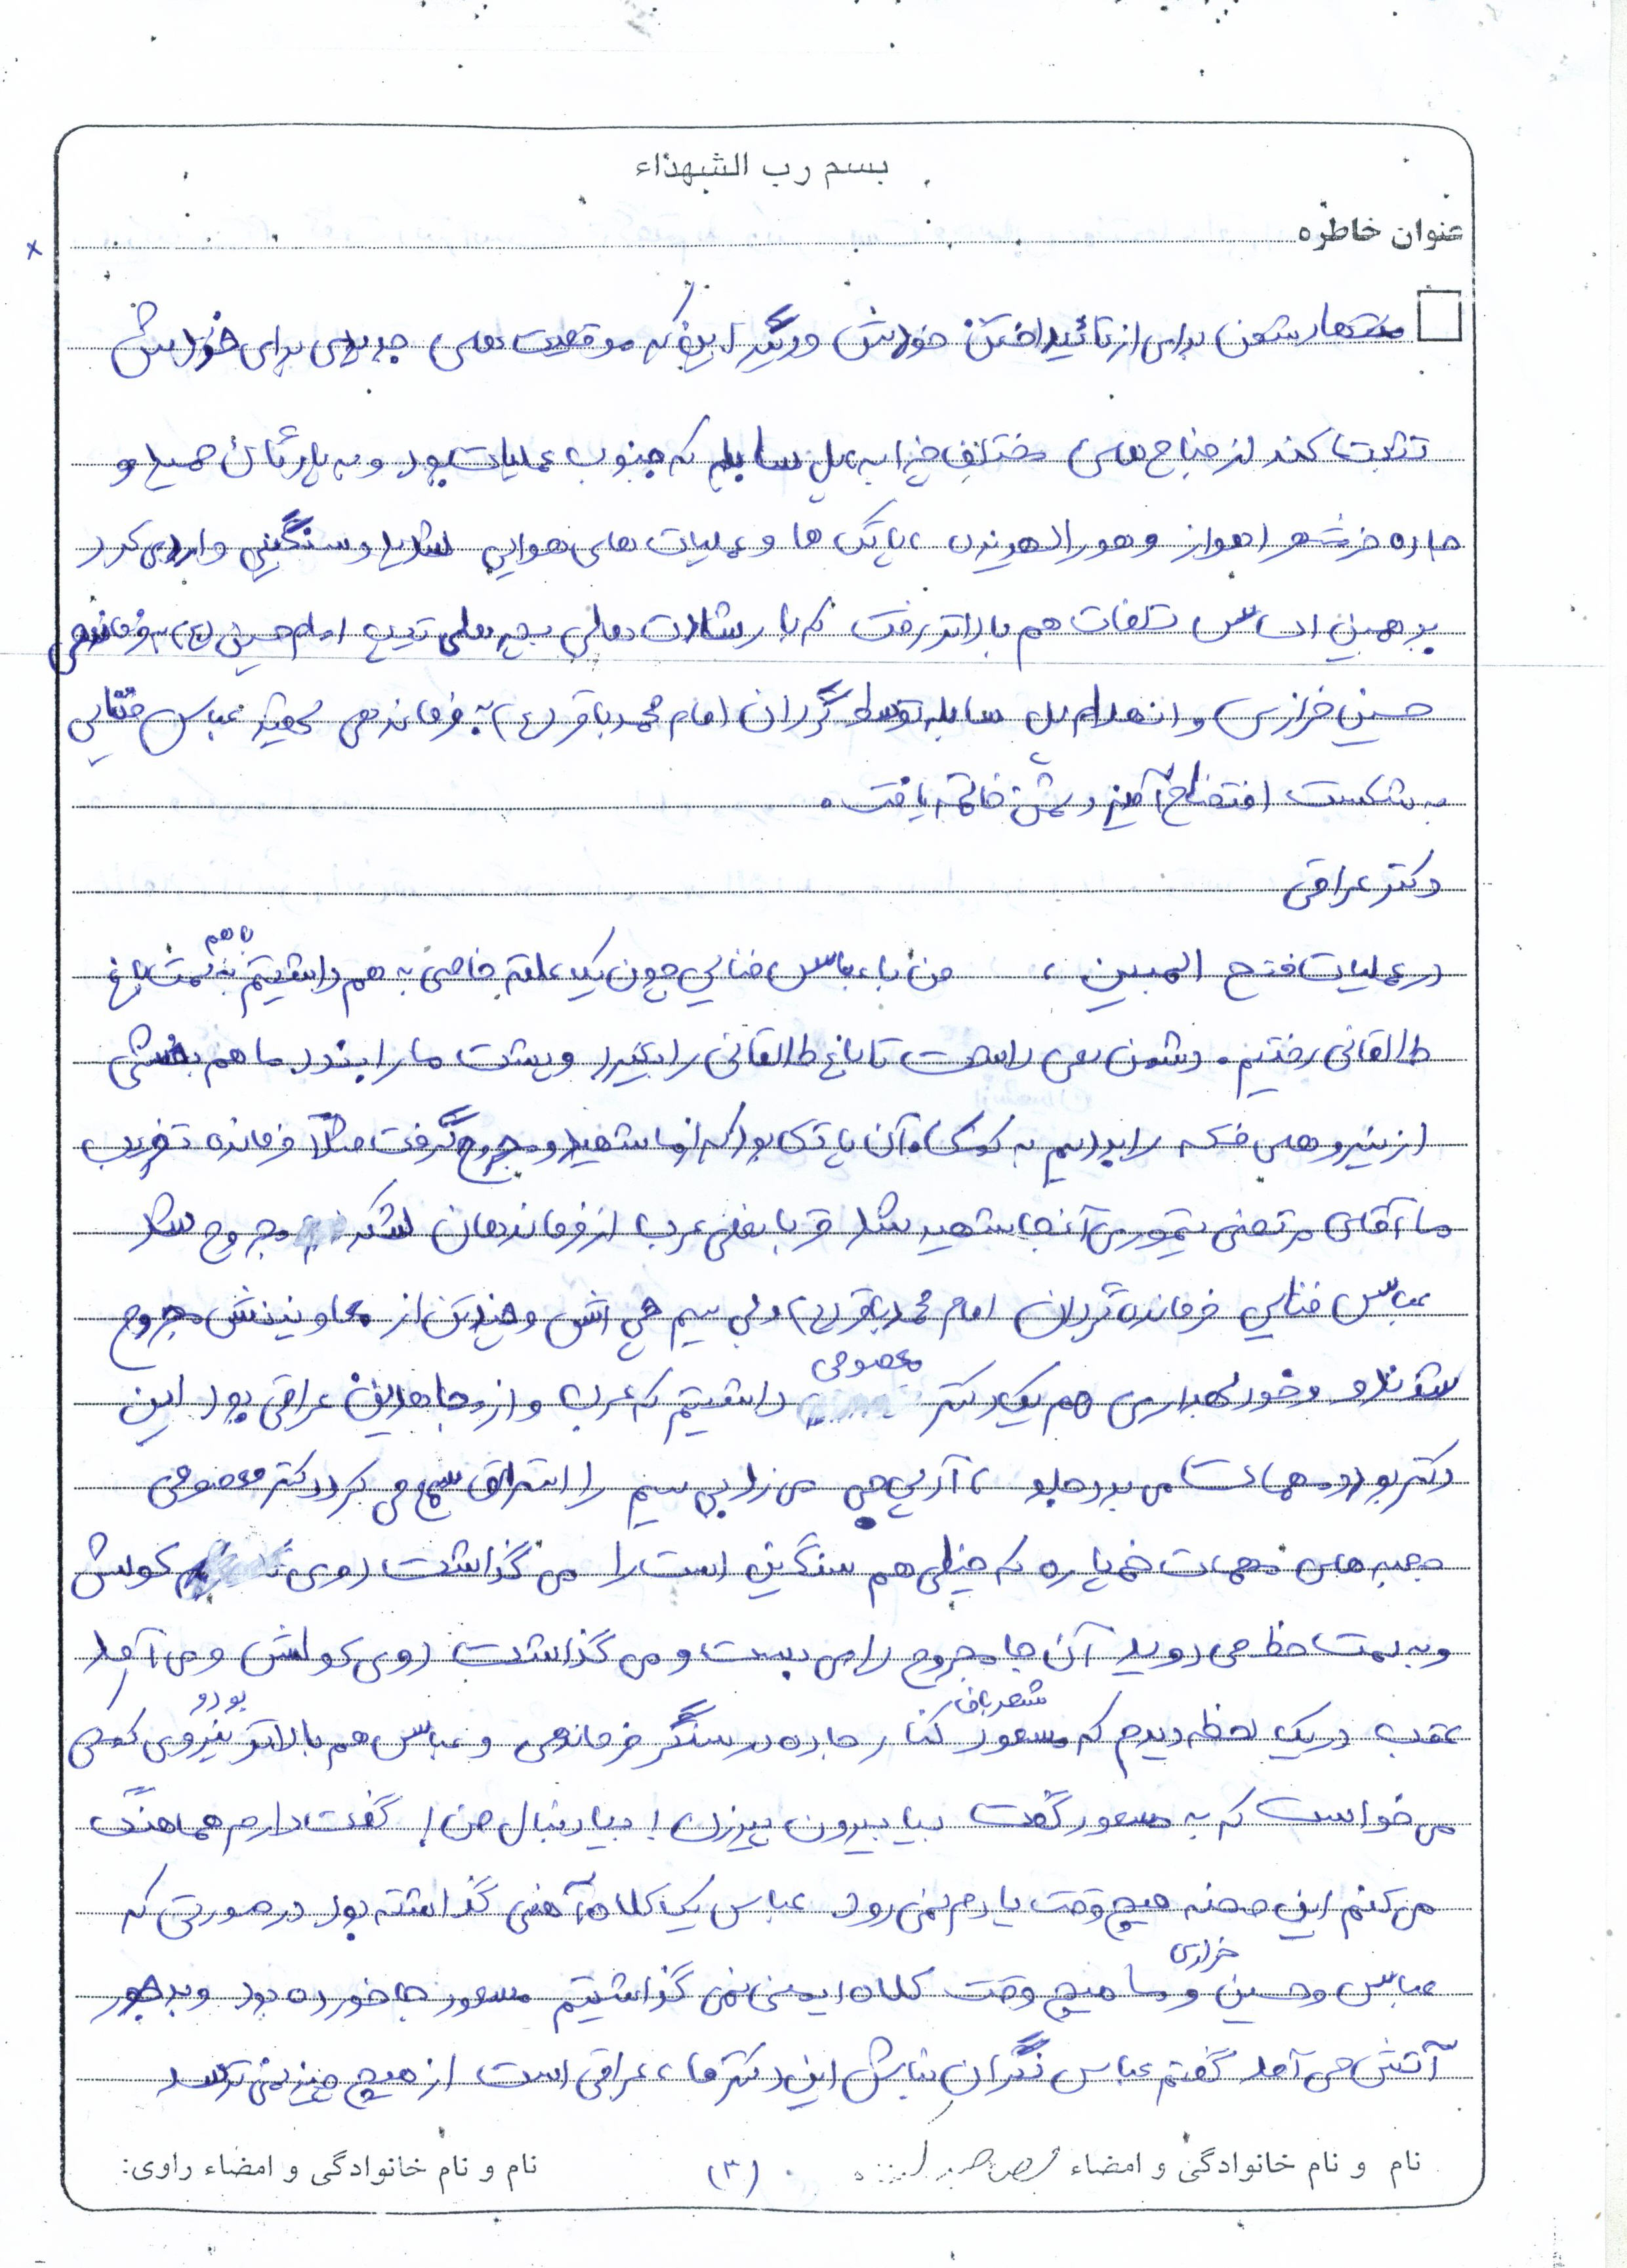 بسم رب الشهداء
عنوان خاطره
برای از تا اینکه موقعیت های جدیدی برای خودش
تثبیت کند از جناح های مختلف چزابه، پل سابله که جنوب عملیات بود و به پادگان حمید و
جاده خرمشهر اهواز و هورالهویزه، پاتک ها و عملیات های هوایی شدید و سنگینی وارد می کرد
بر همین اساس تلفات هم بالاتر رفت که با رشادت های بچه های تیپ امام حسین (ع) به فرماندهی
حسین خرازی و انهدام پل سابله توسط گردان امام محمد باقر (ع) به فرماندهی شهید عباس فنایی
به شکست افتضاح آمیز دشمن خاتمه یافت.
دکتر عراقی
در عملیات فتح المبین، من با عباس فنایی چون یک علقه خاصی به هم داشتیم با هم به سمت باغ
طالقانی رفتیم. دشمن سعی داشت تا باغ طالقانی را بگیرد و پشت ما را ببندد ما هم بخشی
از نیروهای خسته را بردیم به کمک، آن پاتک بود که از ما شهید و مجروح گرفت مثلاً فرمانده تخریب
ما، آقای مرتضی تیموری آنجا شهید شد قربانعلی عرب از فرماندهان لشکر مجروح شد
عباس فنایی فرمانده گردان امام محمد باقر (ع) و بی سیم چی اش و چند تن از معاونینش مجروح
شدند و خود بهداری هم یک دکتر معصومی داشتیم که عرب و از مجاهدین عراقی بود این
دکتر بود و مهمات می برد جلو، آرپی جی می زد، بی سیم را استراق سمع می کرد دکتر معصومی
جعبه های مهمات خمپاره که خیلی هم سنگین است را می گذاشت روی کولش
و به سمت خط می دوید آن جا مجروح را می بست و می گذاشت روی کولش و می آمد
عقب در یک لحظه دیدم که مسعود شعرباف کنار جاده در سنگر فرماندهی بود و عباس هم بالاتر نیروی کمکی
می خواست که به مسعود گفت بیا بیرون پیرزن! بیا دنبال من! گفت دارم هماهنگ
می کنم این صحنه هیچ وقت یادم نمی رود عباس یک کلاه آهنی گذاشته بود در صورتی که
عباس و حسین خرازی و ما هیچ وقت کلاه ایمنی نمی گذاشتیم مسعود جا خورده بود و بدجور
آتش می آمد گفتم عباس نگران نباش این دکتر ما، عراقی است از هیچ چیز نمی ترسد
نام و نام خانوادگی و امضاء
(۳)
نام و نام خانوادگی و امضاء راوی: